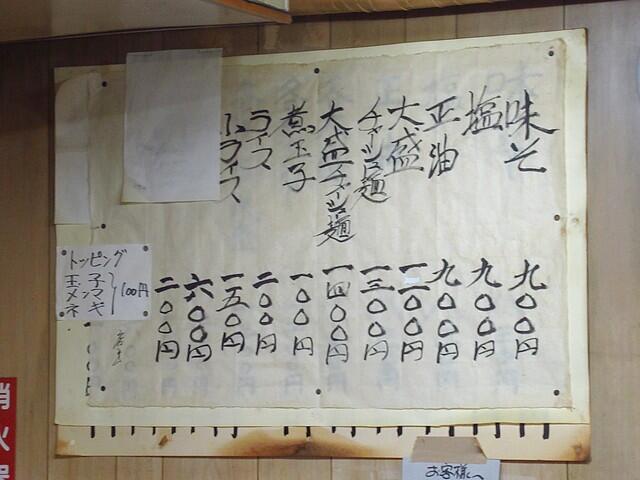 味そ 九〇〇円
塩 九〇〇円
正油 九〇〇円
大盛 一一〇〇円
チャーシュー麺 一三〇〇円
大盛チャーシュー麺 一四〇〇円
煮玉子 一〇〇円
ライス 二〇〇円
小ライス 一五〇円
六〇〇円
二〇〇円
トッピング
玉子
メンマ 100円
ネギ
消火器
お客様へ